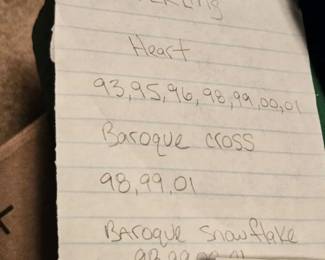 Heart
93,95,96,98,99,00,01
Baroque cross
98,99,01
BAROque Snowflake